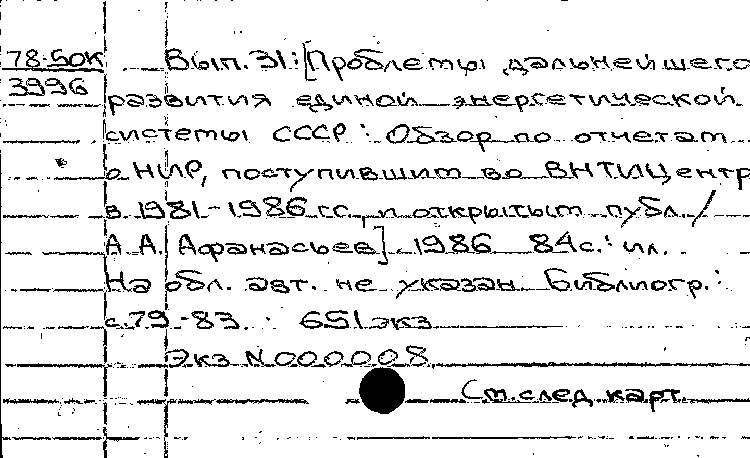 78-50К Вып. 31: [Проблемы дальнейшего
3996 развития единой энергетической
системы СССР : Обзор по отчетам
о НИР, поступившим во ВНТИЦентр
в 1981-1986 гг., и открытым публ. /
А. А. Афанасьев]. 1986 84с.: ил.
На обл. авт. не указан. Библиогр.:
с. 79-83. : 651экз
Экз N000008
См. след. карт.